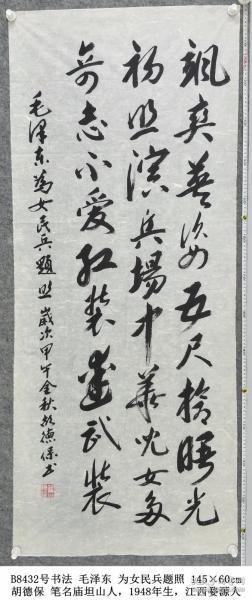 颯爽英姿五尺槍曙光
初照演兵場中華兒女多
奇志不愛紅裝愛武裝
毛澤東為女民兵題照 歲次甲午金秋胡德保書
B8432号书法 毛泽东 为女民兵题照 145×60cm
胡德保 笔名庙坦山人，1948年生，江西婺源人